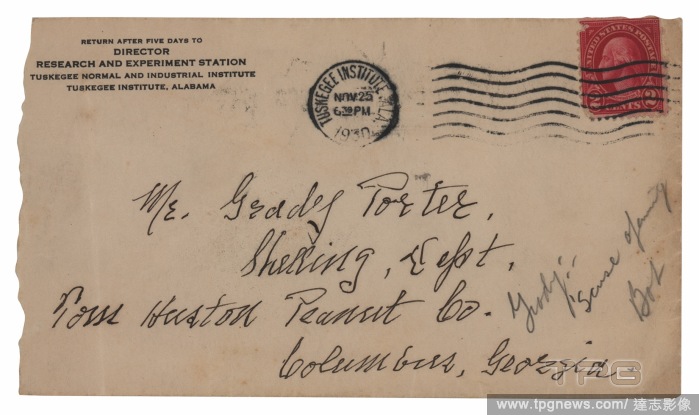 RETURN AFTER FIVE DAYS TO
DIRECTOR
RESEARCH AND EXPERIMENT STATION
TUSKEGEE NORMAL AND INDUSTRIAL INSTITUTE
TUSKEGEE INSTITUTE, ALABAMA
TUSKEGEE INSTITUTE, ALA.
NOV 25
6 30 PM
1930
UNITED STATES POSTAGE
2 CENTS 2
Mr. Grady Porter,
Shelling, Dept,
Tom Huston Peanut Co.
Columbus, Georgia
Grady:-
Bob
TPG
www.tpgnews.com/ 達志影像